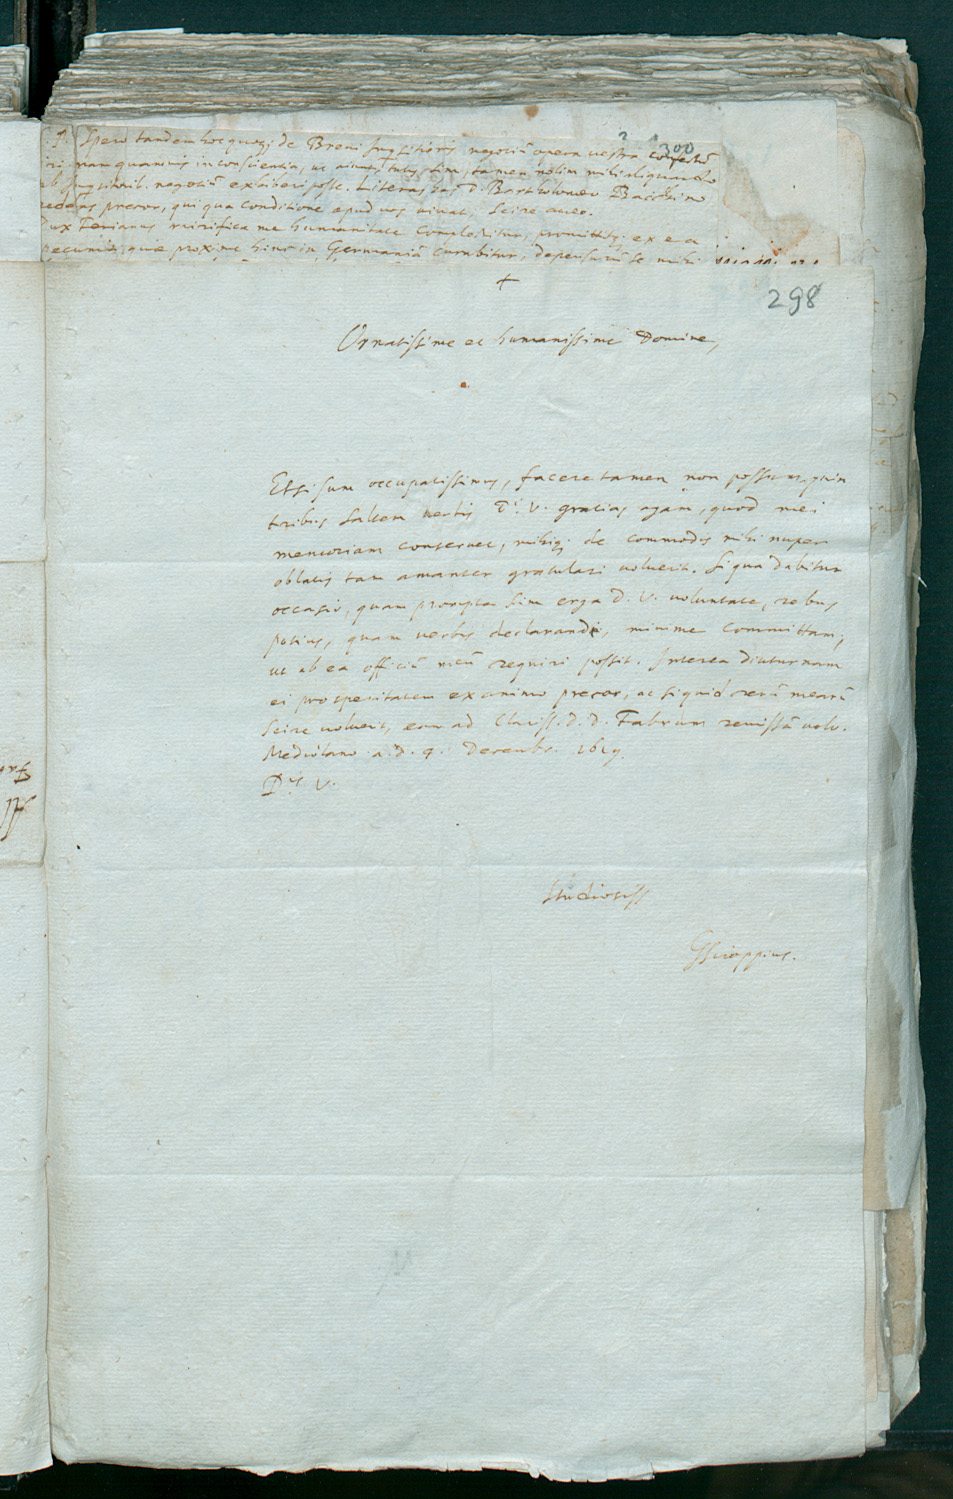 Spero tandem hoc quoq; de Breni Inquisitoris negotiũ opera vestra confectũ
nam quamvis in conscientia, ut aiunt, tutus sim, tamen nolim mihi aliquando
ab Inquisitorib. negotiũ exhiberi posse. Literas has D. Bartholomeo Bacchino
reddas precor, qui qua conditione apud vos vivat, scire aveo.
Dux Ferianus mirifica me humanitate complectitur, promittitq; ex ea
pecunia, quæ proxime hinc in Germaniã curabitur, depensurũ se mihi
300
+
298
Ornatissime et humanissime Domine,
Etsi sum occupatissimus, facere tamen non possum, quin
tribus saltem verbis Dⁱ. V. gratias agam, quod mei
memoriam conservet, mihiq; de commodis mihi nuper
oblatis tam amanter gratulari voluerit. Si qua dabitur
occasio, quam prompta sim erga D. V. voluntate, rebus
potius, quam verbis declarandi, minime committam,
ut ab ea officiũ meũ requiri possit. Interea diuturnam
ei prosperitatem ex animo precor, ac siquid rerũ mearũ
scire voluerit, eam ad Clariss. D. D. Fabrum remissã volo.
Mediolano a. d. 9. Decembr. 1619.
D. V.
Studiosiss
GScioppius.